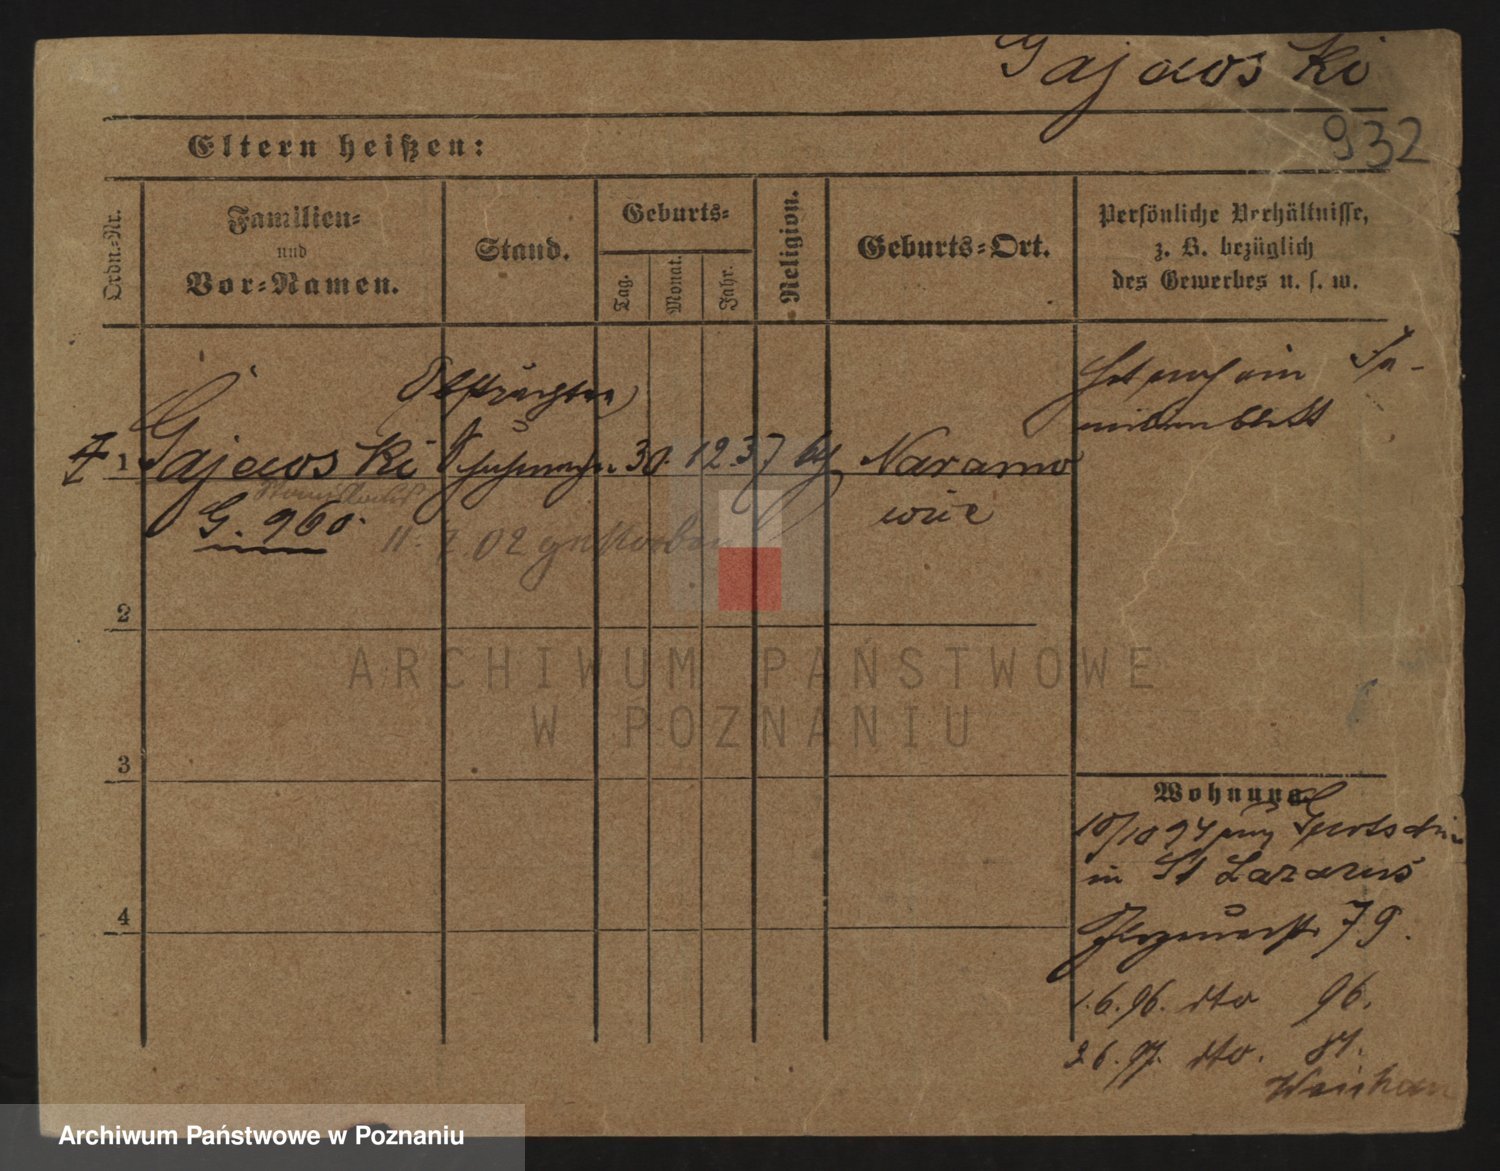 Gajewski
932
Eltern heißen:
Ordn.-Nr.
Familien-
und
Vor-Namen.
Stand.
Geburts-
Tag.
Monat.
Jahr.
Religion.
Geburts-Ort.
Persönliche Verhältnisse,
z. B. bezüglich
des Gewerbes u. s. w.
Hat noch ein Fa-
milienblatt
1 Gajewski Schuhmacher 30. 12. 37 Naramo
wice
G. 960.
11. 2. 02 gestorben
2
3
4
Wohnung.
10/10 94
in St Lazarus
79.
1.6.96. dto 96.
2.6.97. dto. 81.
ARCHIWUM PAŃSTWOWE
W POZNANIU
Archiwum Państwowe w Poznaniu